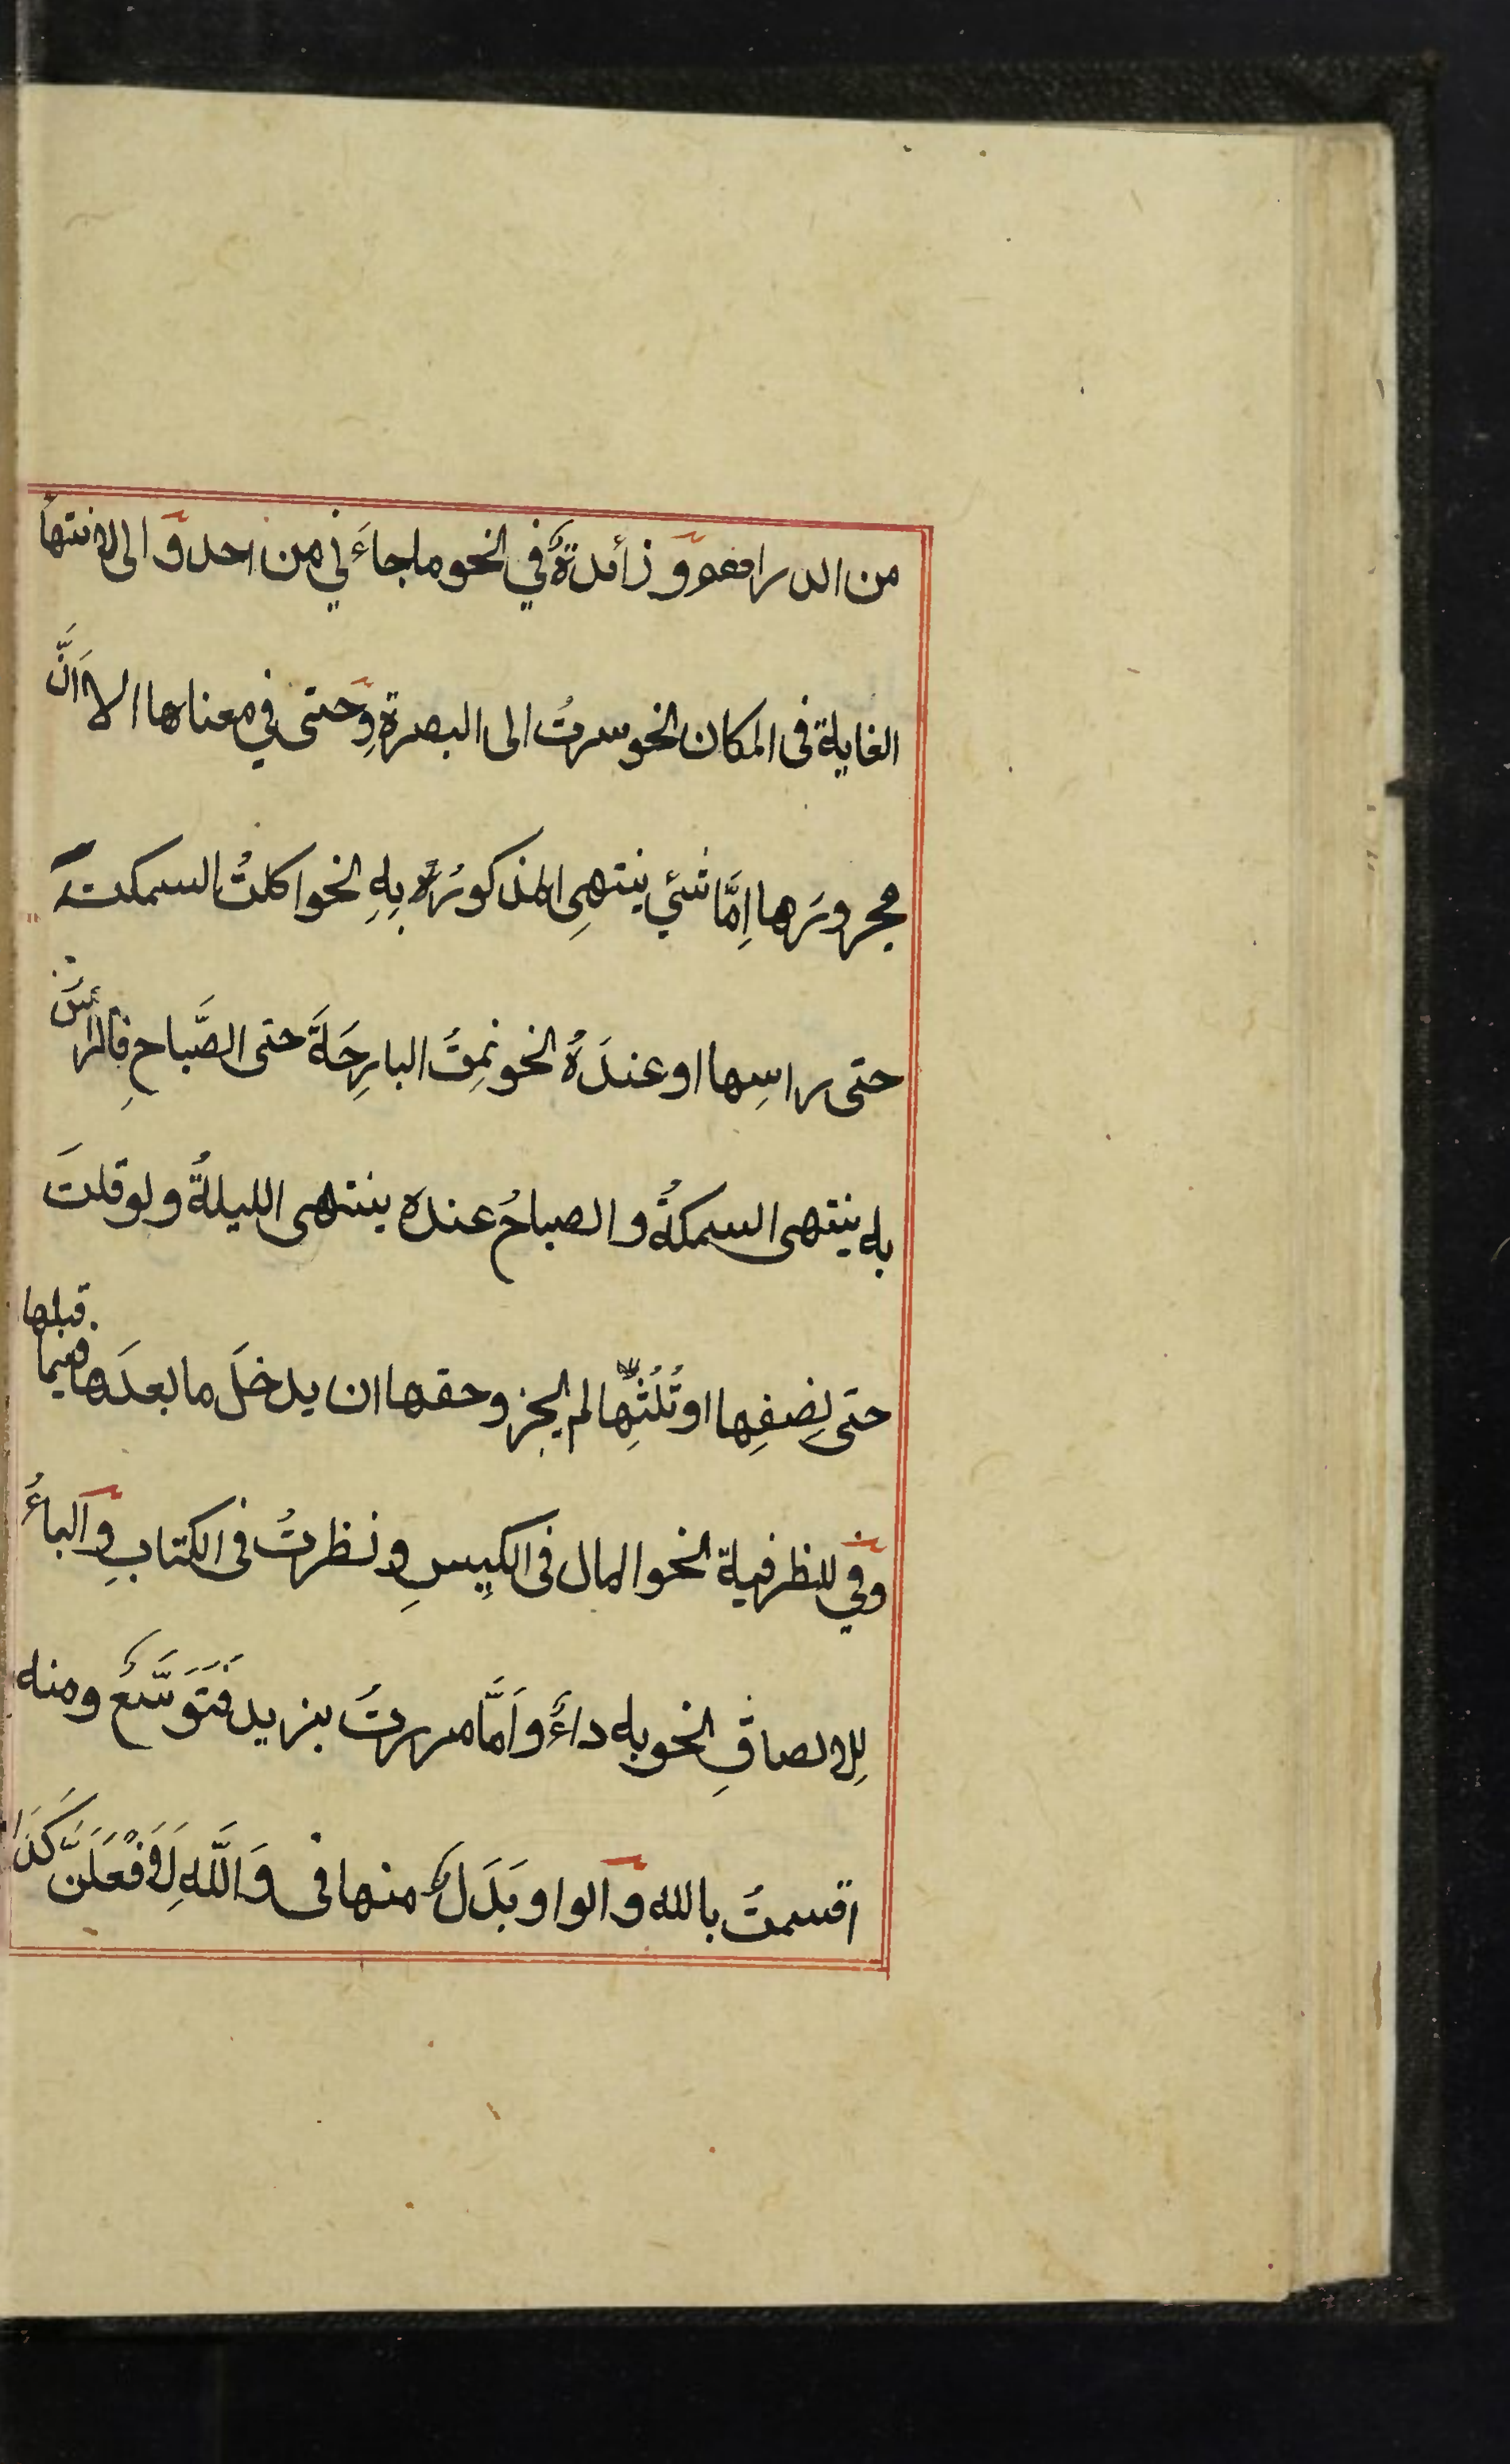 من الدراهم وَ زائدةٌ في نحو ما جاءَني من احد وَ الى لانتهاء
الغاية فى المكان نحو سرتُ الى البصرةِ وَحتى في معناها الا اَنَّ
مجرورَها اِمَّا شئي ينتهىِ المذكورُ بِهِ نحو اكلتُ السمكتَ
حتى راسِها او عندَهُ نحو نمِتُ البارِحَةَ حتى الصَّباحِ فالرأسُ
به ينتهى السمكةُ والصباحُ عنده ينتهى الليلةُ ولو قلتَ
حتى نِصفِها او ثُلُثِها لم يجز وحقها ان يدخلَ ما بعدَها فيما قبلها
وَفي للظرفية نحو المال فى الكيِسِ ونظرتُ فى الكتابِ وَالباءُ
لِلالصاقِ نحو به داءٌ واَمَّا مررتُ بزيد فَتَوَسَّعٌ ومنه
اقسمتُ بالله وَالواو بَدَلٌ منها فى وَاللَّهِ لَاَفْعَلَنَّ كَذَا